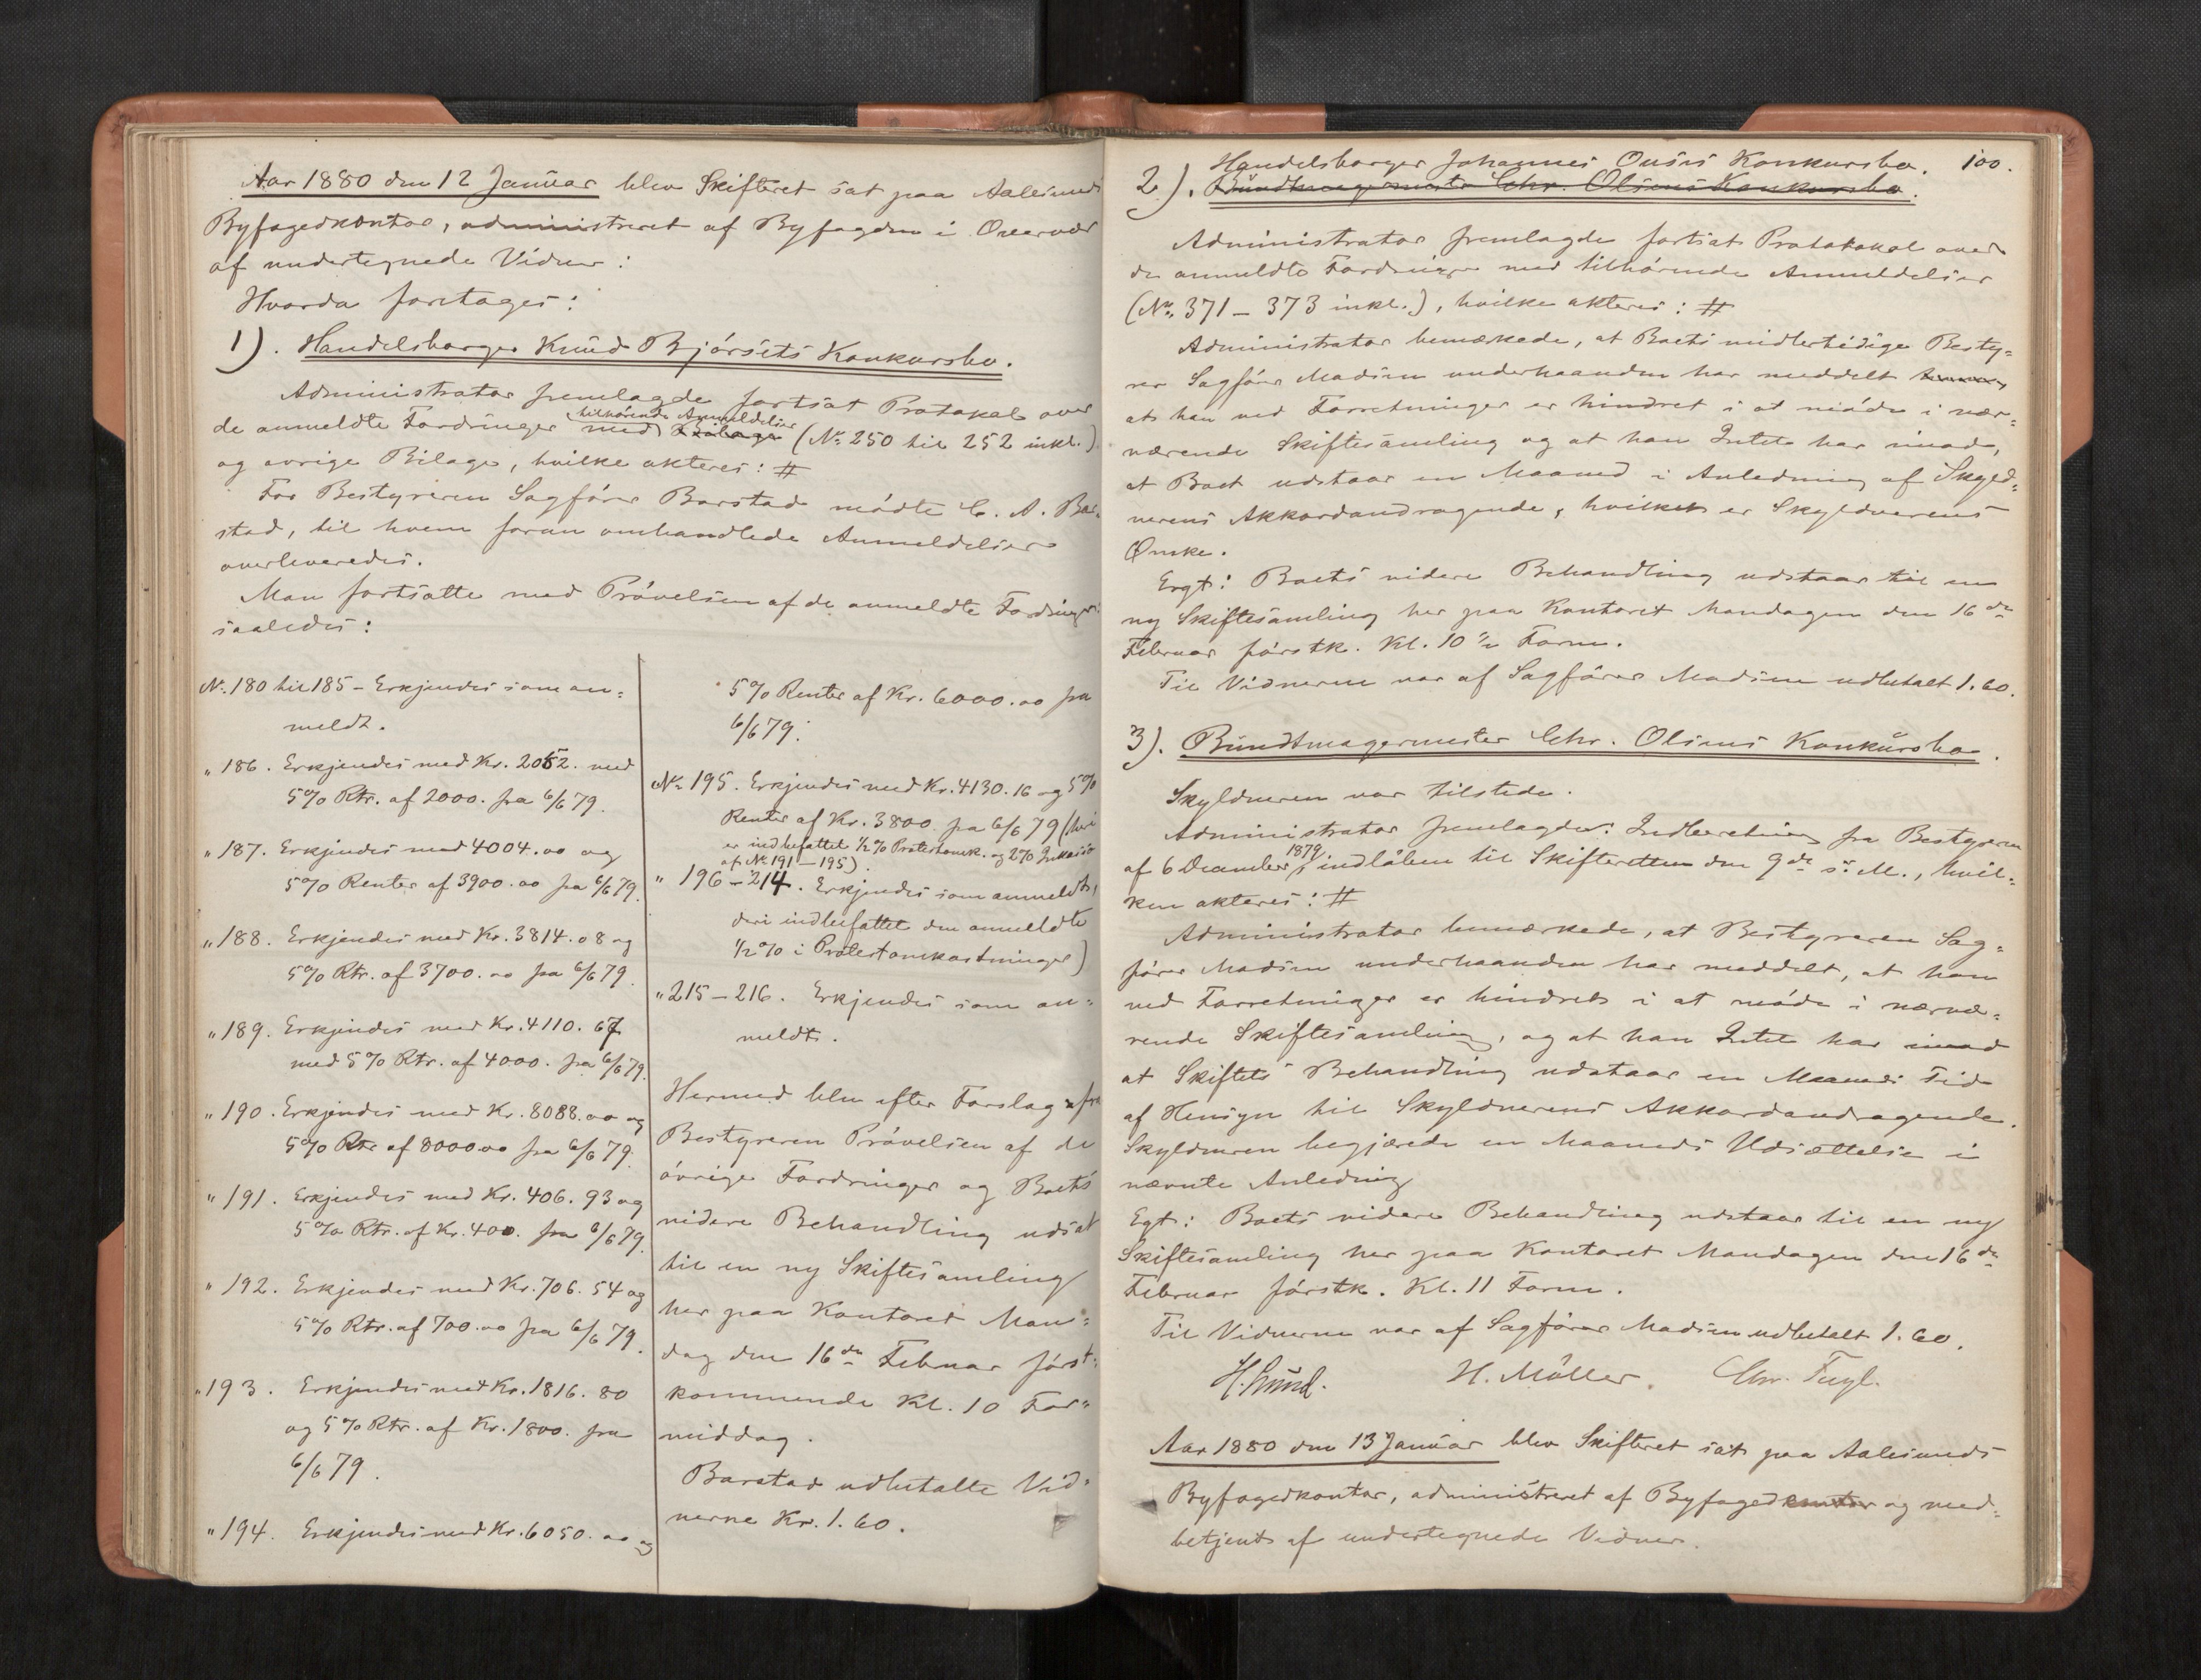 Aar 1880 den 12 Januar blev Skifteret sat paa Aalesunds
Byfogedkontor, administreret af Byfogden i Overvær
af undertegnede Vidner:
Hvorda foretages:
1). Handelsborger Knud Bjørsets Konkursbo.
Administrator fremlagde fortsat Protokol over
de anmeldte Fordringer med tilhørende Anmeldelser (No. 250 til 252 inkl.)
og øvrige Bilage, hvilke akteres: #
For Bestyreren Sagfører Barstad mødte C. A. Bar-
stad, til hvem foran omhandlede Anmeldelser
overleveredes.
Man fortsatte med Prøvelsen af de anmeldte Fordringer
saaledes:
No. 180 til 185 – Erkjendes som an-
meldt.
" 186. Erkjendes med Kr. 2052. med
5% Rtr. af 2000. fra 6/6 79.
" 187. Erkjendes med 4004.00 og
5% Renter af 3900.00 fra 6/6 79.
" 188. Erkjendes med Kr. 3814.08 og
5% Rtr. af 3700.00 fra 6/6 79.
" 189. Erkjendes med Kr. 4110.67
med 5% Rtr. af 4000. fra 6/6 79.
" 190. Erkjendes med Kr. 8088.00 og
5% Rtr. af 8000.00 fra 6/6 79.
" 191. Erkjendes med Kr. 406.93 og
5% Rtr. af Kr. 400. fra 6/6 79.
" 192. Erkjendes med Kr. 706.54 og
5% Rtr. af 700.00 fra 6/6 79.
" 193. Erkjendes med Kr. 1816.80
og 5% Rtr. af Kr. 1800. fra
6/6 79.
" 194. Erkjendes med Kr. 6050.00 og
5% Renter af Kr. 6000.00 fra
6/6 79.
No. 195. Erkjendes med Kr. 4130.16 og 5%
Renter af Kr. 3800 fra 6/6 79 (heri
er indbefattet 1/2% Protestomk. og 2% Inkasso
af No. 191–195).
" 196–214. Erkjendes som anmeldt,
deri indbefattet den anmeldte
1/2% i Protestomkostninger)
" 215–216. Erkjendes som an-
meldt.
Hermed blev efter Forslag fra
Bestyreren Prøvelsen af de
øvrige Fordringer og Boets
videre Behandling udsat
til en ny Skiftesamling
her paa Kontoret Man-
dag den 16de Februar først-
kommende Kl. 10 For-
middag.
Barstad udbetalte Vid-
nerne Kr. 1.60.
100.
Handelsborger Johannes Ouses Konkursbo.
2). Bundtmagermester Chr. Olsens Konkursbo.
Administrator fremlagde fortsat Protokol over
de anmeldte Fordringer med tilhørende Anmeldelser
(No. 371 – 373 inkl.), hvilke akteres: #
Administrator bemærkede, at Boets midlertidige Besty-
rer Sagfører Madsen underhaanden har meddelt
at han ved Forretninger er hindret i at møde i nær-
værende Skiftesamling og at han Intet har imod,
at Boet udstaar en Maaned i Anledning af Skyld-
nerens Akkordandragende, hvilket er Skyldnerens
Ønske.
Ergt: Boets videre Behandling udstaar til en
ny Skiftesamling her paa Kontoret Mandagen den 16de
Februar førstk. Kl. 10 1/2 Form.
Til Vidnerne var af Sagfører Madsen udbetalt 1.60.
3). Bundtmagermester Chr. Olsens Konkursbo.
Skyldneren var tilstede.
Administrator fremlagde: Indberetning fra Bestyreren
af 6 December 1879, indløben til Skifteretten den 9de s. M., hvil-
ken akteres: #
Administrator bemærkede, at Bestyreren Sag-
fører Madsen underhaanden har meddelt, at han
ved Forretninger er hindret i at møde i nærvæ-
rende Skiftesamling, og at han Intet har imod
at Skiftets Behandling udstaar en Maaneds Tid
af Hensyn til Skyldnerens Akkordandragende.
Skyldneren begjærede en Maaneds Udsættelse i
nævnte Anledning
Egt: Boets videre Behandling udstaar til en ny
Skiftesamling her paa Kontoret Mandagen den 16de
Februar førstk. Kl. 11 Form.
Til Vidnerne var af Sagfører Madsen udbetalt 1.60.
H. Lund. H. Møller. Chr. Fugl.
Aar 1880 den 13 Januar blev Skifteret sat paa Aalesunds
Byfogedkontor, administreret af Byfoged og med-
betjent af undertegnede Vidner.